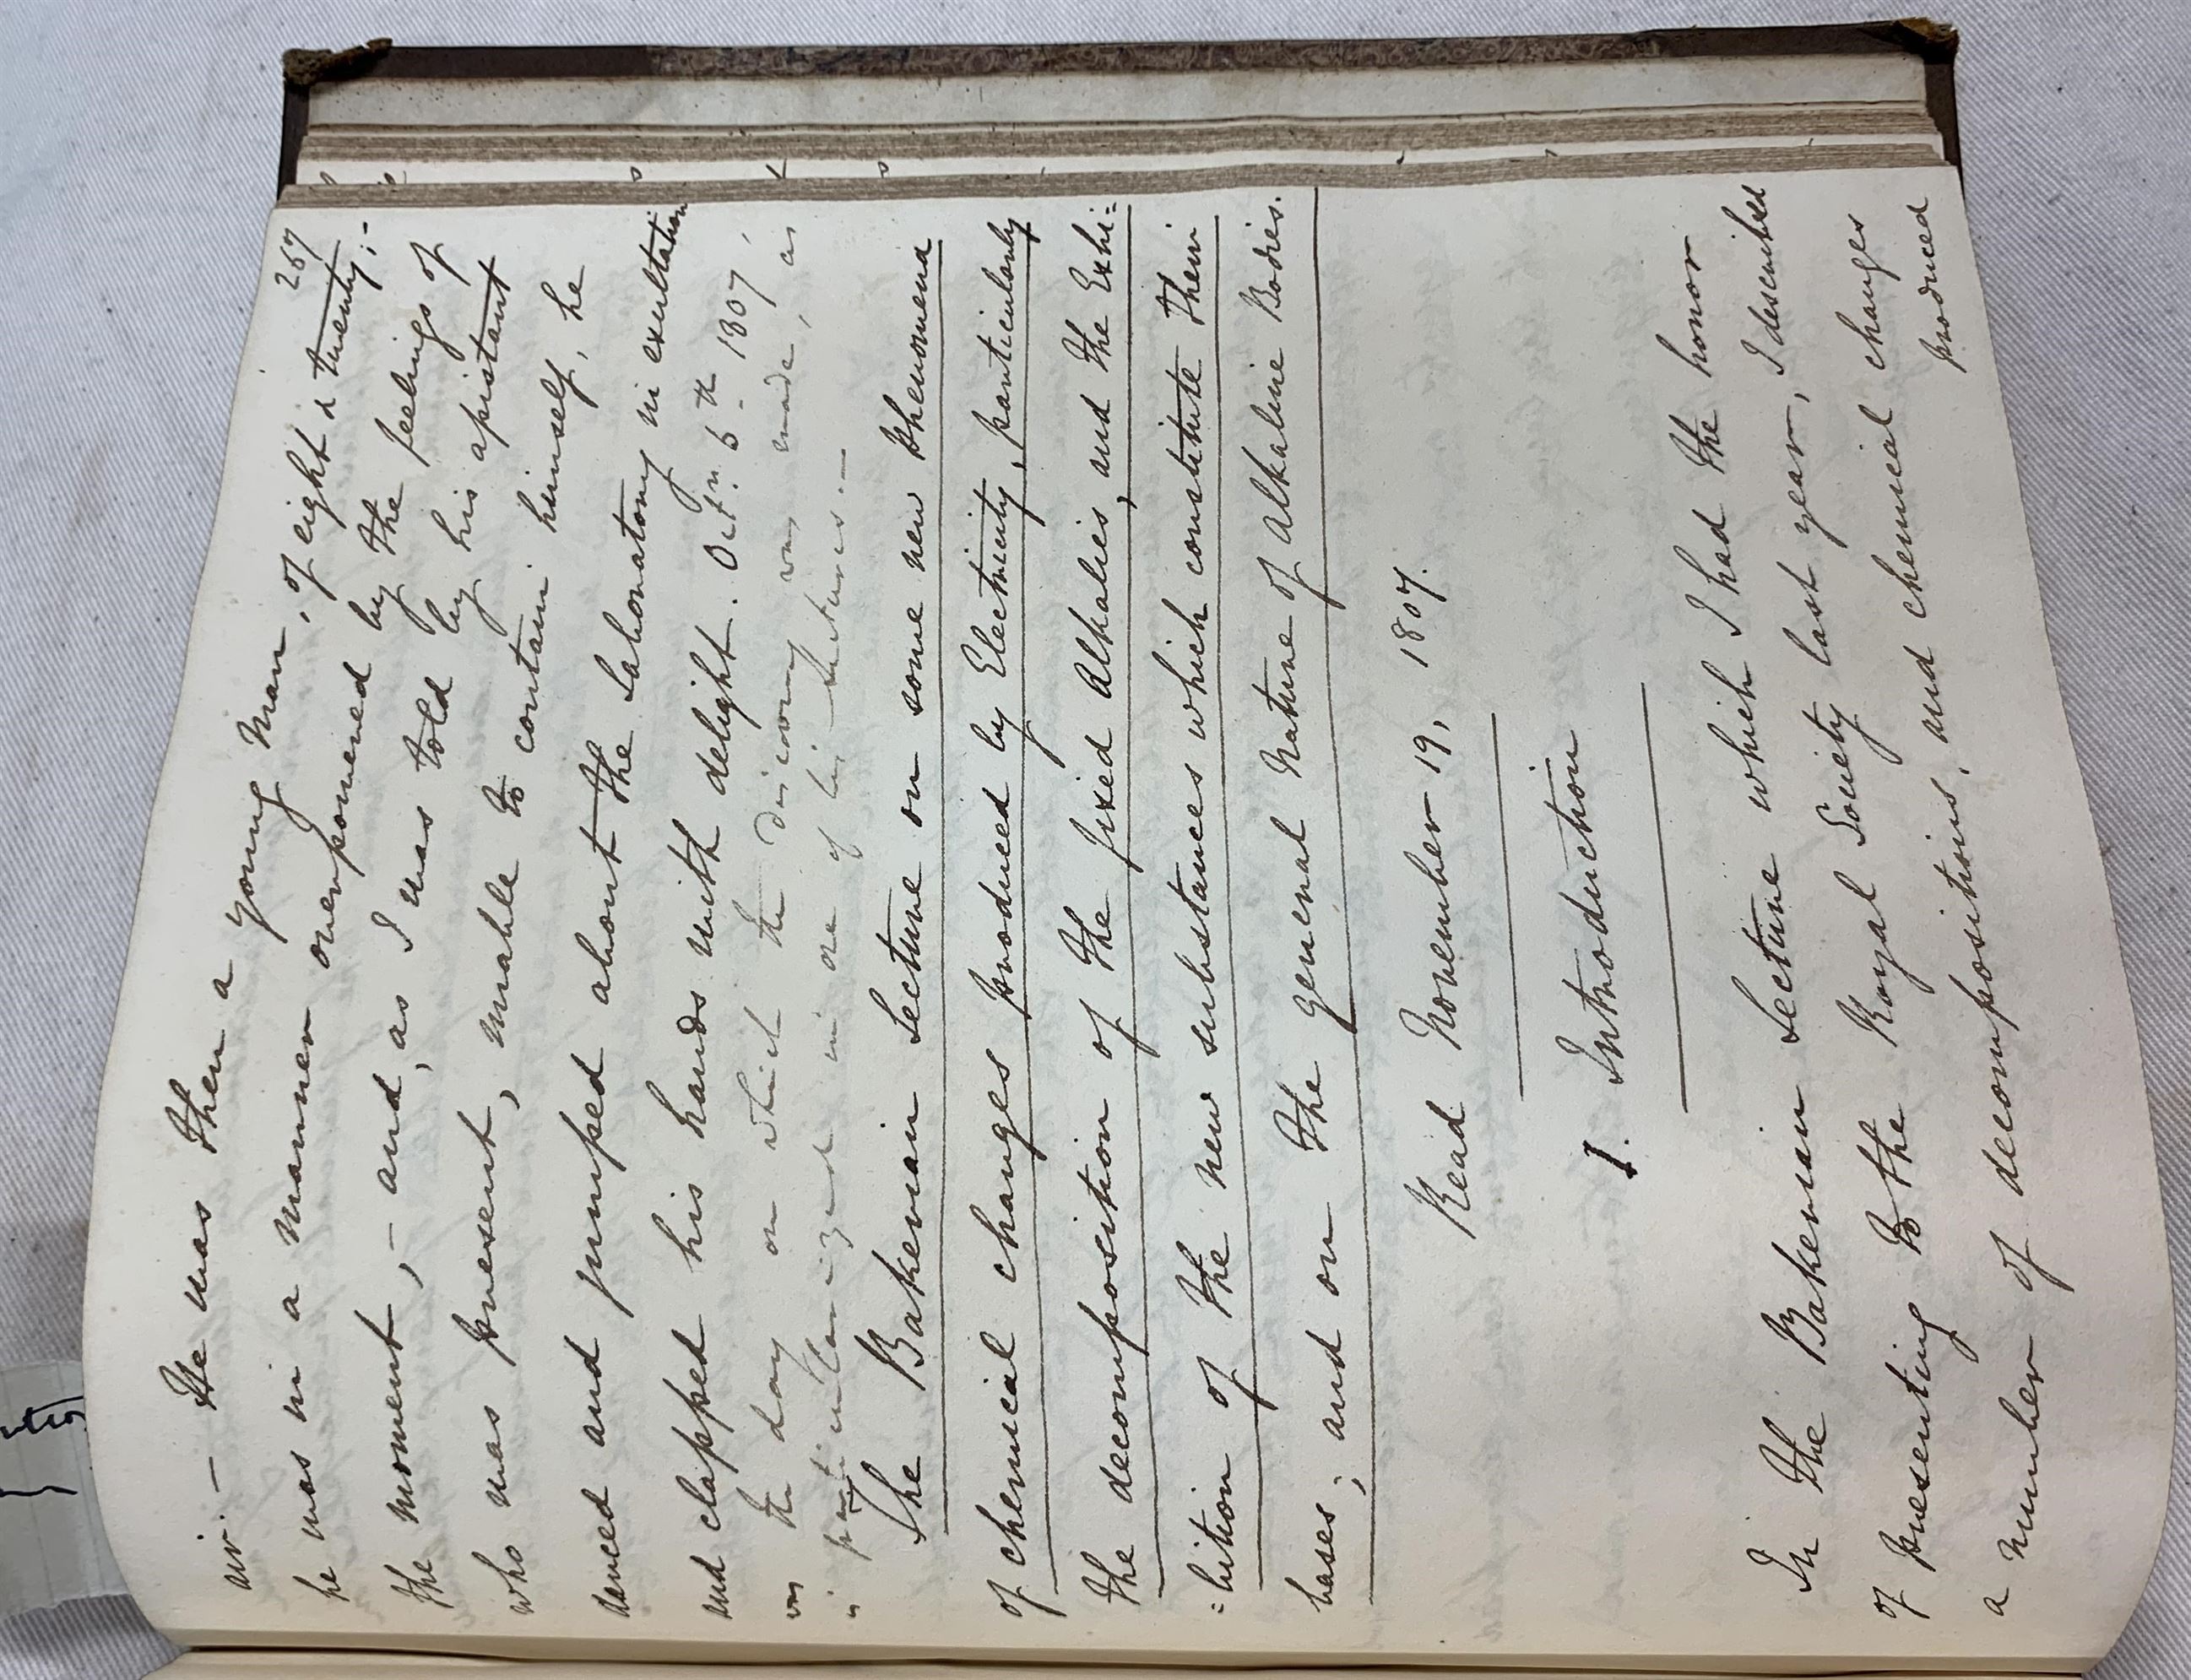 257
air. — He was then a young man, of eight & twenty; -
he was in a manner overpowered by the feelings of
the moment, - and, as I was told by his assistant
who was present, unable to contain himself, he
danced and jumped about the laboratory in exultation
and clapped his hands with delight. Oct.r 6th 1807,
was the day on which the discovery was made, as
is particularized in one of his lectures. —
The Bakerian Lecture on some new Phenomena
of chemical changes produced by Electricity, particularly
the decomposition of the fixed Alkalies, and the Exhi:
:bition of the new substances which constitute their
bases; and on the general Nature of Alkaline Bodies.
Read November 19, 1807.
I. Introduction
In the Bakerian Lecture which I had the honor
of presenting to the Royal Society last year, I described
a number of decompositions, and chemical changes
produced